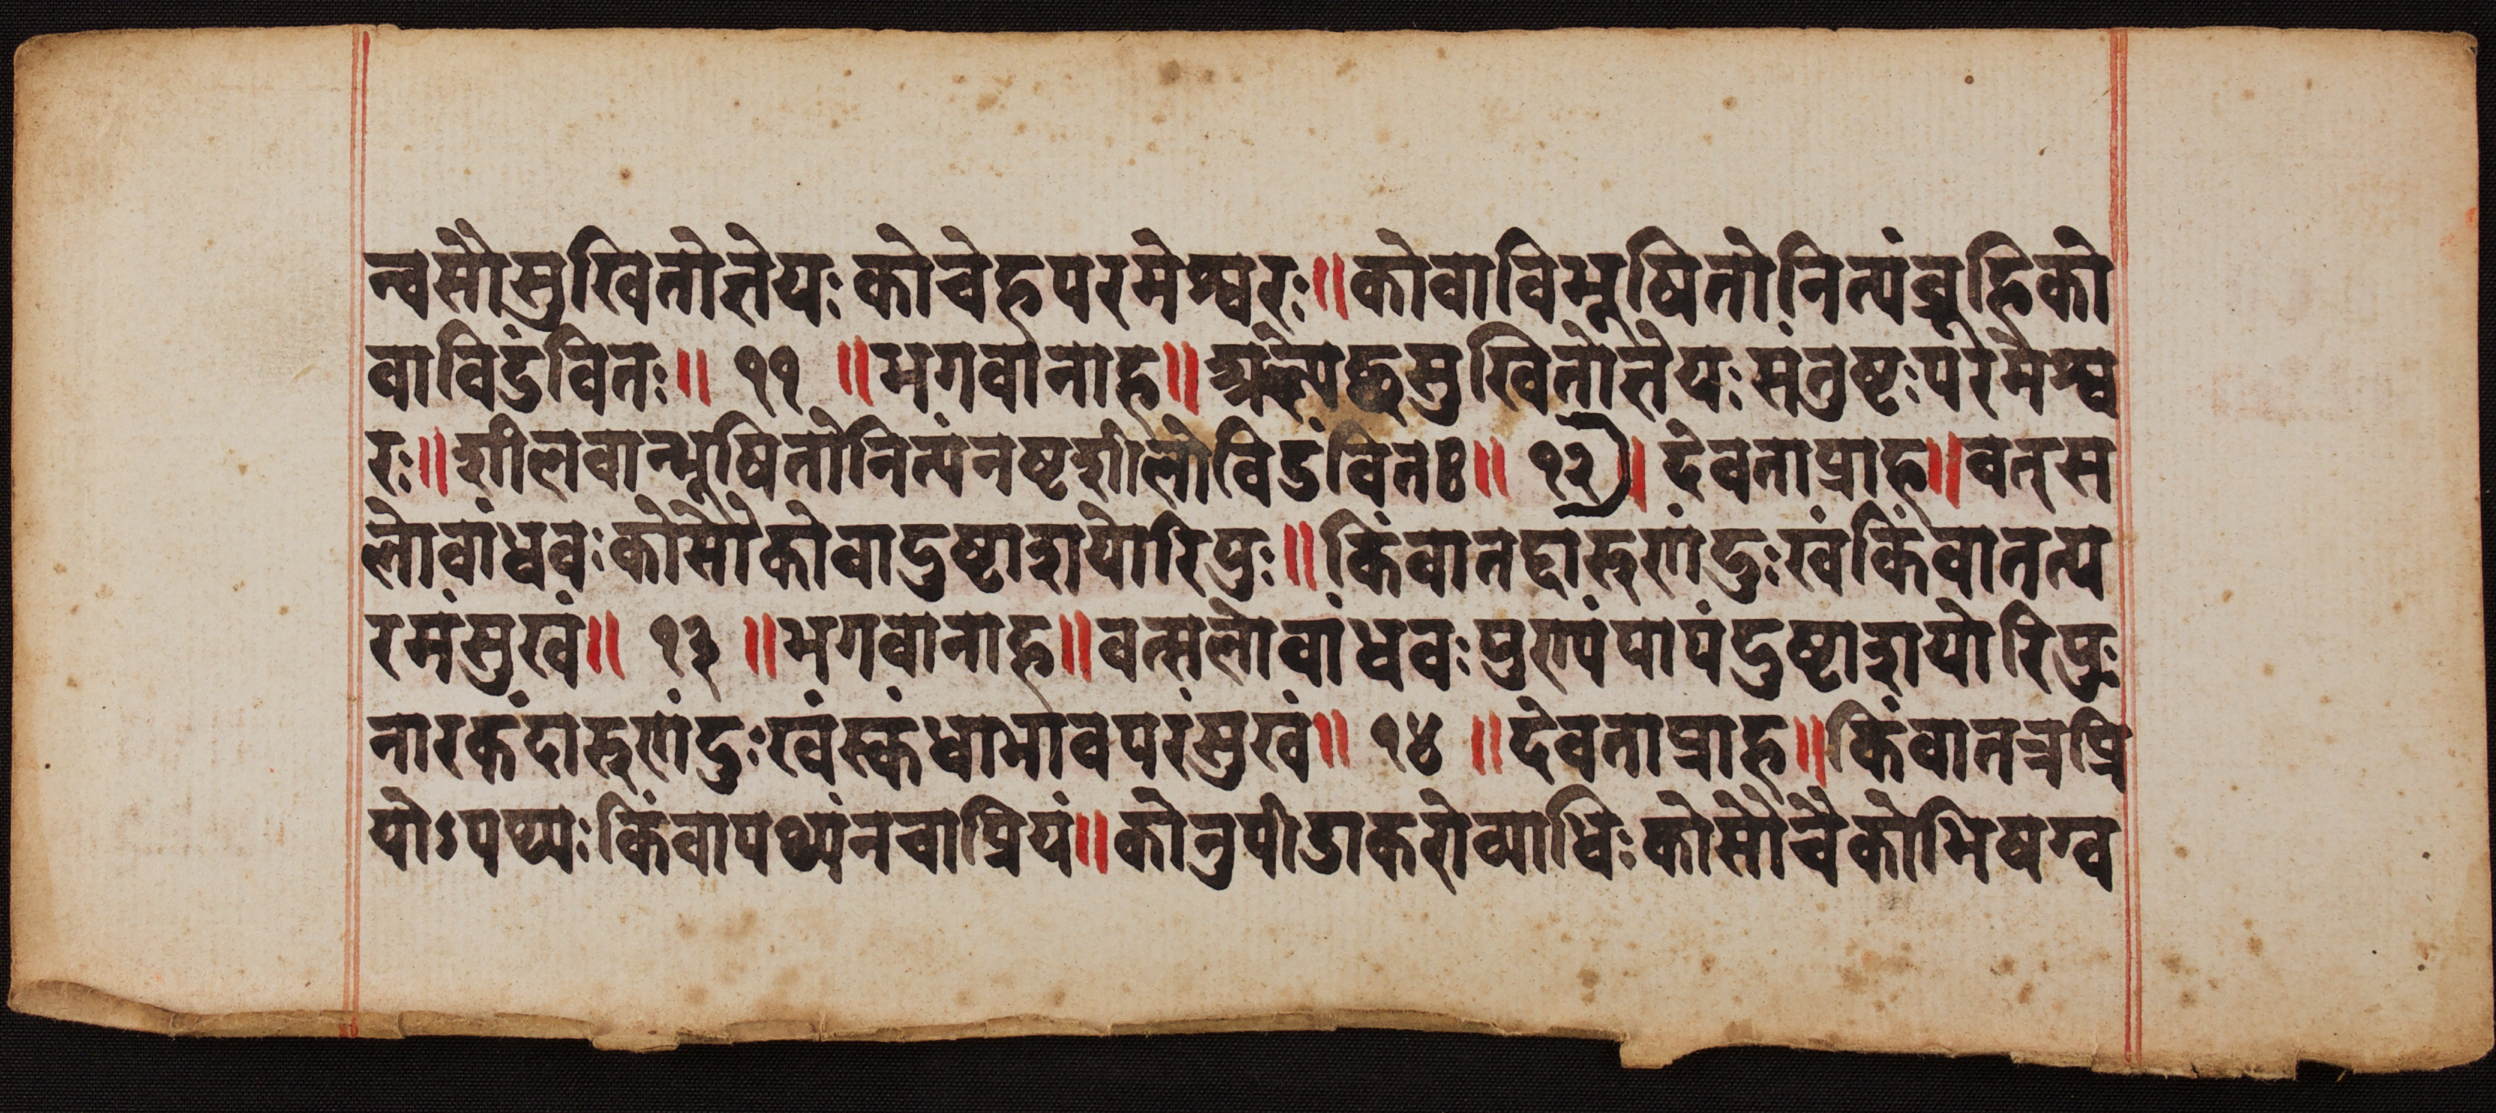 न्वसौसुखितोज्ञेयःकोचेहपरमेश्वरः॥कोवाविभूषितोनित्यंब्रूहिको
वाविडंवितः॥ ११ ॥भगवानाह॥अल्पेछसुखितोज्ञेयःसंतुष्टःपरमेश्व
रः॥शीलवान्भूषितोनित्यंनष्टशीलोविडंवितः॥ १२॥ देवताप्राह॥वत्स
लोवांधवःकोसौकोवादुष्टाशयोरिपुः॥किंवातद्दारुणंदुःखंकिंवातत्प
रमंसुखं॥ १३ ॥भगवानाह॥वत्सलोवांधवःपुण्यंपापंदुष्टाशयोरिपुः
नारकंदारुणंदुःखंस्कंधाभावपरंसुखं॥ १४ ॥देवताप्राह॥किंवातन्नप्रि
योऽपथ्यःकिंवापथ्यंनचाप्रियं॥कोनुपीडाकरोव्याधिःकोसौचैकोभिषग्व